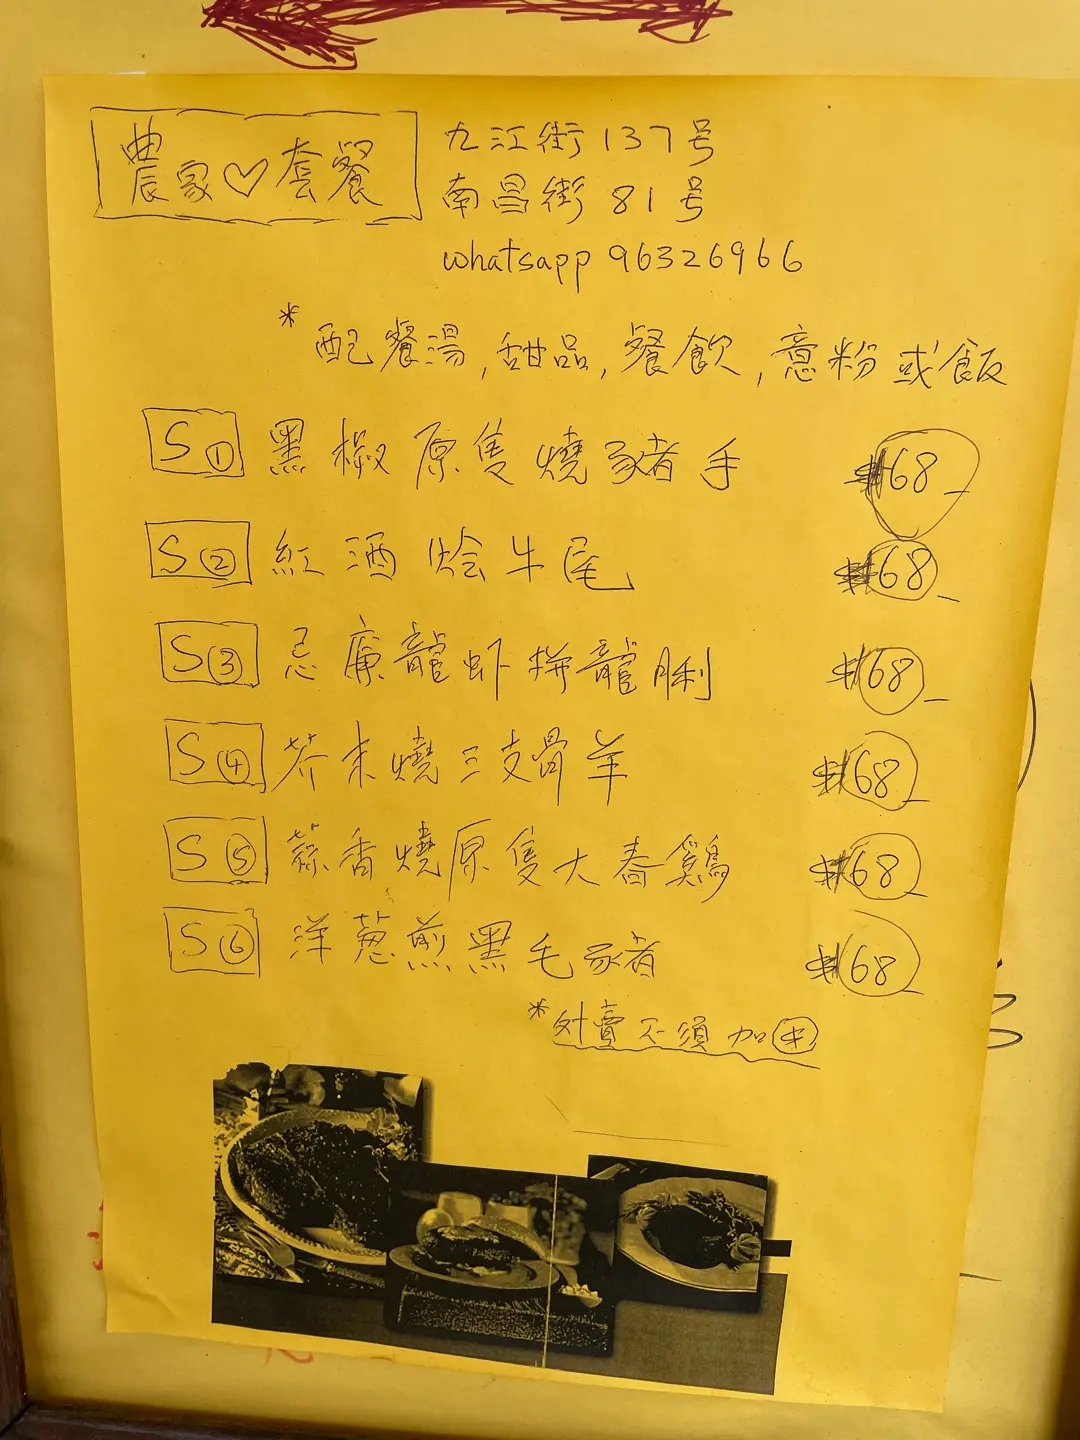 農家♡套餐
九江街 137号
南昌街 81号
whatsapp 96326966
*配餐湯,甜品,餐飲,意粉或飯
S① 黑椒原隻燒豬手 $68_
S② 紅酒燴牛尾 $68_
S③ 忌廉龍虾拼龍脷 $68_
S④ 芥末燒三支骨羊 $68_
S⑤ 蒜香燒原隻大春鷄 $68_
S⑥ 洋葱煎黑毛豬 $68_
*外賣不須加$